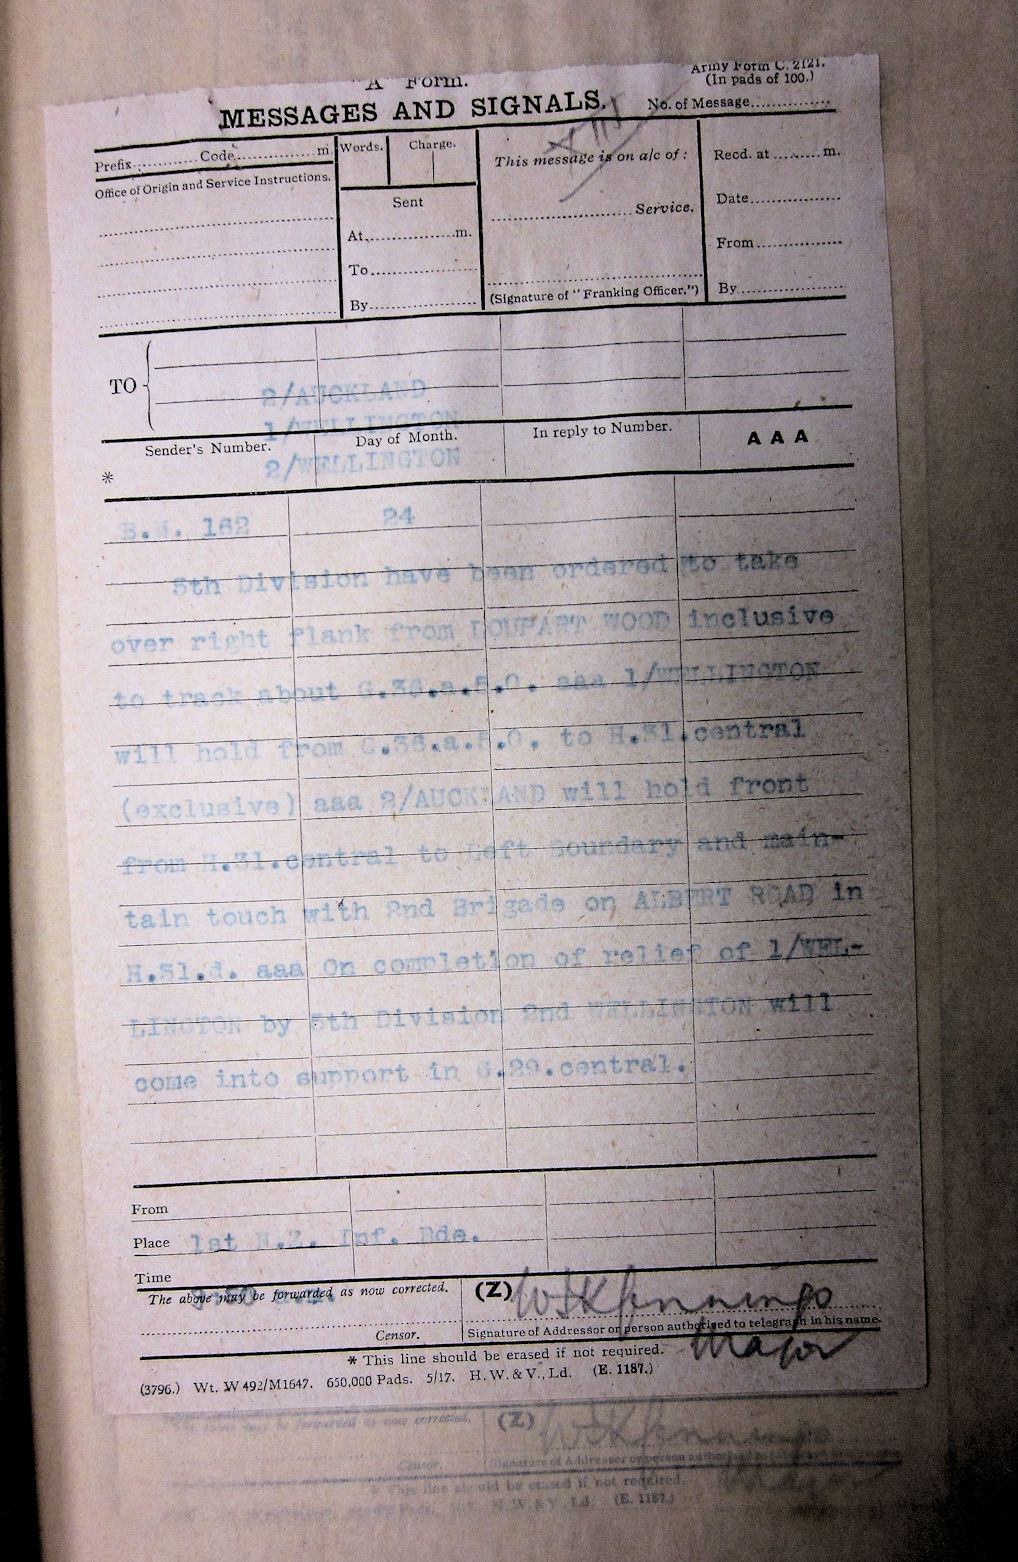 "A" Form.
Army Form C. 2121.
(In pads of 100.)
MESSAGES AND SIGNALS.
No. of Message..............
Prefix............Code................m.
Words.
Charge.
This message is on a/c of :
Recd. at .........m.
Office of Origin and Service Instructions.
Sent
Date..................
.............................Service.
At..................m.
From.................
To.....................
(Signature of "Franking Officer.")
By......................
By.....................
TO
2/AUCKLAND
1/WELLINGTON
2/WELLINGTON
Sender's Number.
Day of Month.
In reply to Number.
A A A
*
B.M. 162 24
5th Division have been ordered to take
over right flank from LOUPART WOOD inclusive
to track about G.36.a.5.0. aaa 1/WELLINGTON
will hold from G.36.a.5.0. to H.31.central
(exclusive) aaa 2/AUCKLAND will hold front
from H.31.central to Left Boundary and main-
tain touch with 2nd Brigade on ALBERT ROAD in
H.31.d. aaa On completion of relief of 1/WEL-
LINGTON by 5th Division 2nd WELLINGTON will
come into support in G.29.central.
From
Place 1st N.Z. Inf. Bde.
Time
The above may be forwarded as now corrected.
(Z) Jennings
Major
Censor.
Signature of Addressor or person authorised to telegraph in his name.
* This line should be erased if not required.
(3796.) Wt. W 492/M1647. 650,000 Pads. 5/17. H. W. & V., Ld. (E. 1187.)
forwarded as now corrected.
(Z) Jennings
Censor.
Major
* This line should be erased if not required.
H. W. & V. Ld. (E. 1187.)